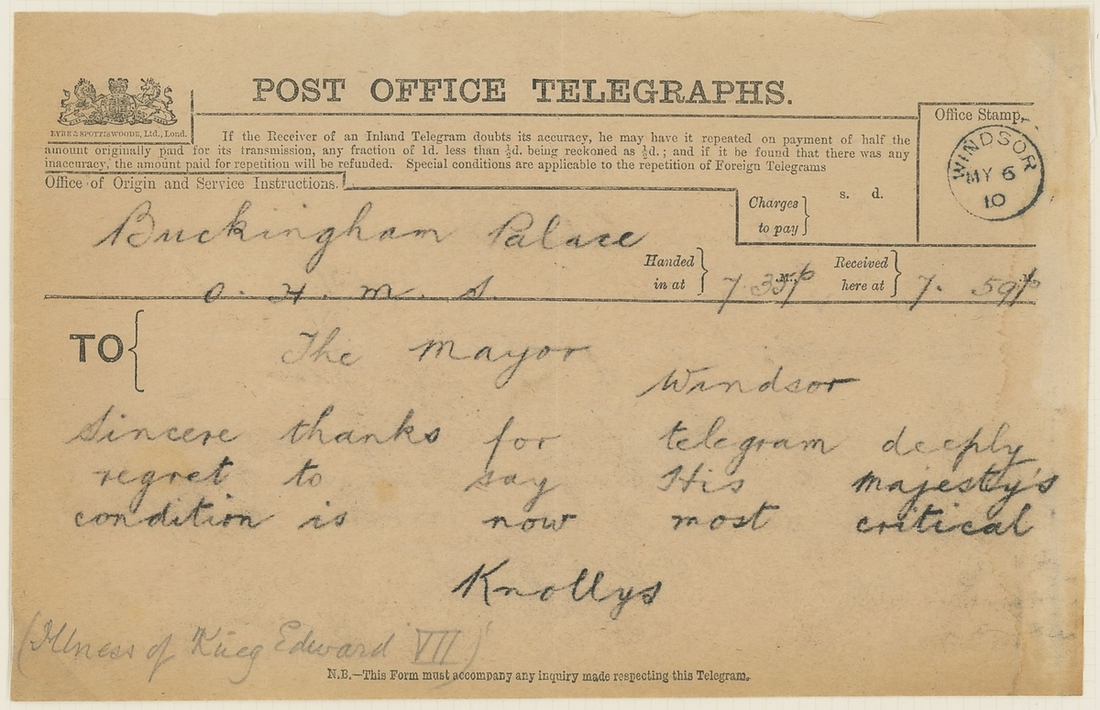 POST OFFICE TELEGRAPHS.
EYRE & SPOTTISWOODE, Ltd., Lond.
If the Receiver of an Inland Telegram doubts its accuracy, he may have it repeated on payment of half the
amount originally paid for its transmission, any fraction of 1d. less than ½d. being reckoned as ½d.; and if it be found that there was any
inaccuracy, the amount paid for repetition will be refunded. Special conditions are applicable to the repetition of Foreign Telegrams
Office of Origin and Service Instructions.
Office Stamp.
WINDSOR
MY 6
10
Charges to pay
s. d.
Buckingham Palace
O. H. M. S.
Handed in at
7.35 p M.
Received here at
7.59 p M
TO
The Mayor
Windsor
Sincere thanks for telegram deeply
regret to say His Majesty's
condition is now most critical
Knollys
(Illness of King Edward VII)
N.B.—This Form must accompany any inquiry made respecting this Telegram.